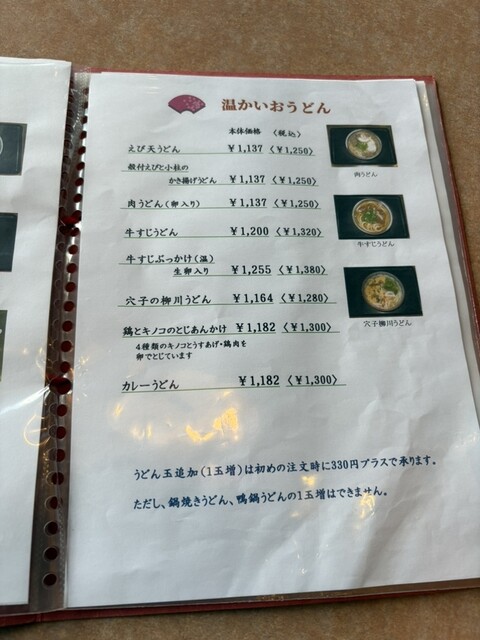 温かいおうどん
本体価格 〈税込〉
えび天うどん ¥1,137 〈¥1,250〉
殻付えびと小柱の
かき揚げうどん ¥1,137 〈¥1,250〉
肉うどん(卵入り) ¥1,137 〈¥1,250〉
牛すじうどん ¥1,200 〈¥1,320〉
牛すじぶっかけ(温)
生卵入り ¥1,255 〈¥1,380〉
穴子の柳川うどん ¥1,164 〈¥1,280〉
鶏とキノコのとじあんかけ ¥1,182 〈¥1,300〉
4種類のキノコとうすあげ・鶏肉を
卵でとじています
カレーうどん ¥1,182 〈¥1,300〉
肉うどん
牛すじうどん
穴子柳川うどん
うどん玉追加(1玉増)は初めの注文時に330円プラスで承ります。
ただし、鍋焼きうどん、鴨鍋うどんの1玉増はできません。